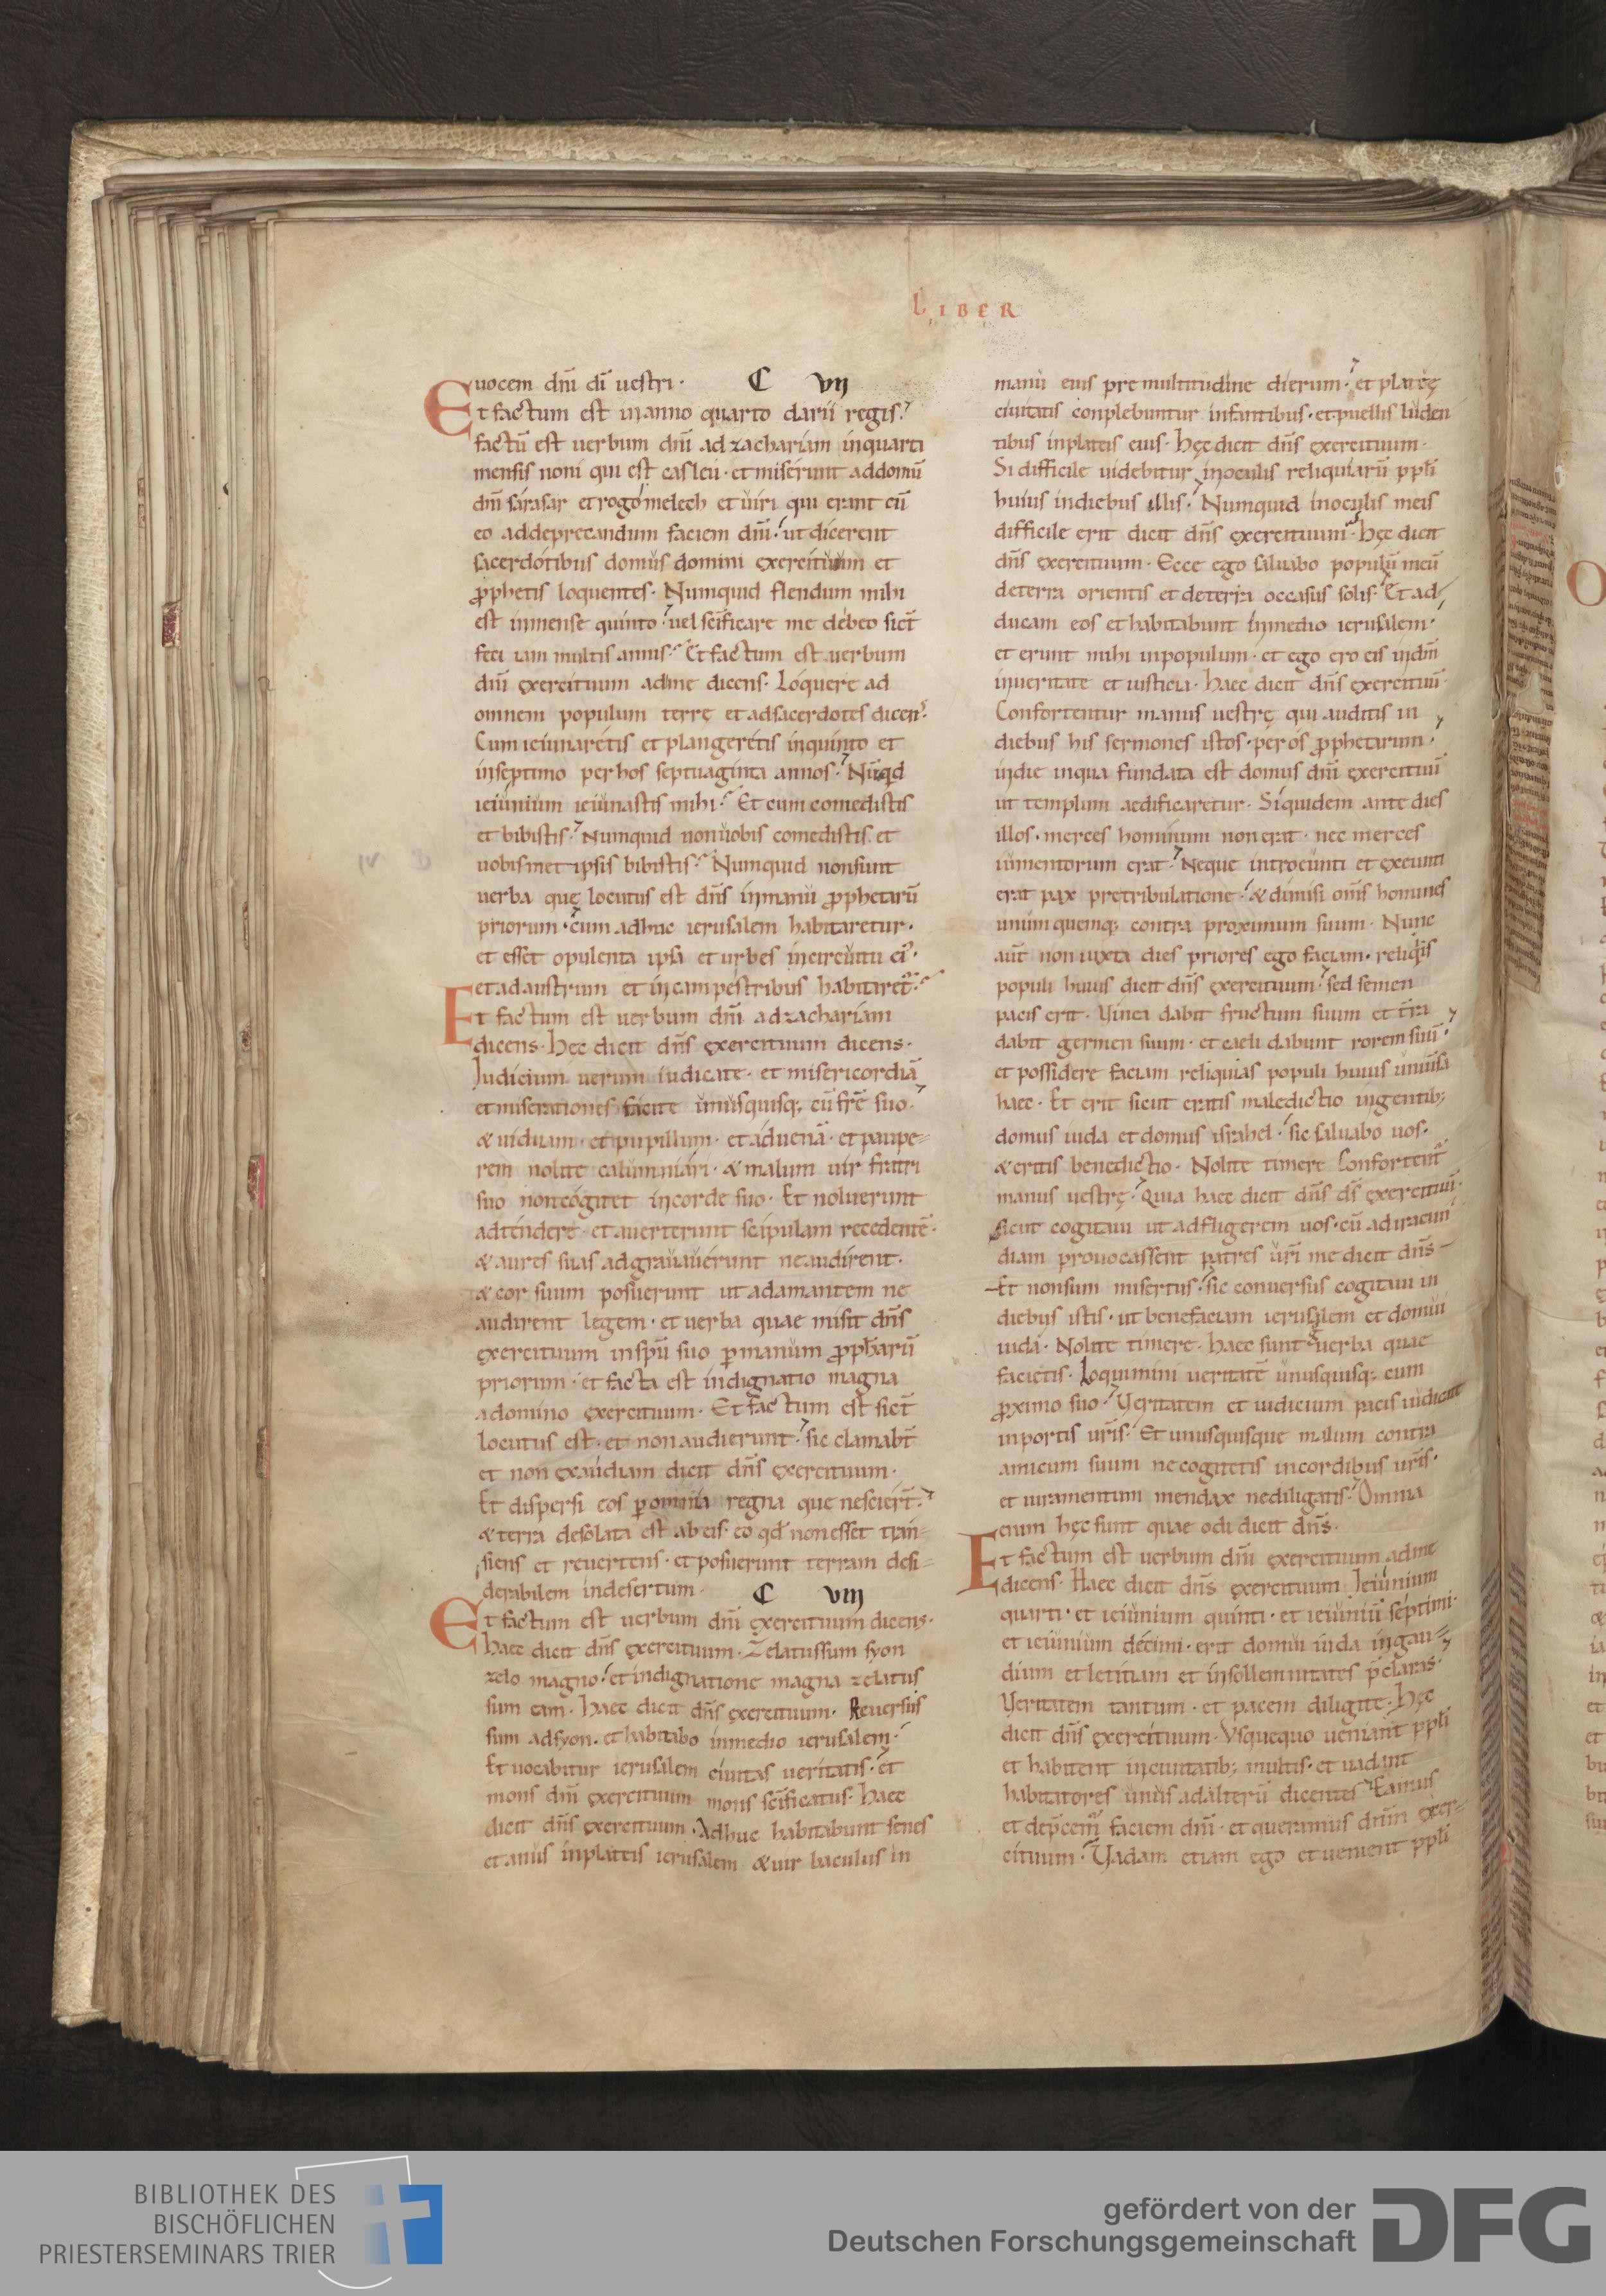 LIBER
uocem dn̄i dī uestri· C VII
Et factum est in anno quarto darii regis·
factū est uerbum dn̄i ad zachariam in quarti
mensis noni qui est casleu· et miserunt ad domū
dn̄i sarasar et rogomelech et uiri qui erant cū
eo ad deprecandum faciem dn̄i· ut dicerent
sacerdotibus domus domini exercituum et
ꝓphetis loquentes· Numquid flendum mihi
est in mense quinto· uel sc̄ificare me debeo sict̄
feci iam multis annis· Et factum est uerbum
dn̄i exercituum ad me dicens· Loquere ad
omnem populum terrę et ad sacerdotes dicens·
Cum ieiunaretis et plangeretis in quinto et
in septimo per hos septuaginta annos· Nūqd
ieiunium ieiunastis mihi· Et cum comedistis
et bibistis· Numquid non uobis comedistis et
uobismet ipsis bibistis· Numquid non sunt
uerba quę locutus est dn̄s in manu ꝓphetarū
priorum· cum adhuc ierusalem habitaretur·
et esset opulenta ipsa et urbes in circuitu ei'·
et ad austrum et in campestribus habitaret̄·
Et factum est uerbum dn̄i ad zachariam
dicens· Hęc dicit dn̄s exercituum dicens·
Iudicium uerum iudicate· et misericordiā
et miserationes facite unusquisq; cū fr̄e suo·
& uiduam· et pupillum· et aduenā· et paupe-
rem nolite calumniari· & malum uir fratri
suo non cogitet in corde suo· Et noluerunt
adtendere· et auerterunt scapulam recedentē·
& aures suas adgrauauerunt ne audirent·
& cor suum posuerunt ut adamantem ne
audirent legem· et uerba quae misit dn̄s
exercituum in sp̄u suo ꝑ manum ꝓph̄arū
priorum· et facta est indignatio magna
a domino exercituum· Et factum est sict̄
locutus est· et non audierunt· sic clamabt̄
et non exaudiam dicit dn̄s exercituum·
Et dispersi eos ꝑ omnia regna que nescier̄t·
& terra desolata est ab eis· eo qd̄ non esset tran-
siens et reuertens· et posuerunt terram desi-
derabilem in desertum· C VIII
Et factum est uerbum dn̄i exercituum dicens·
Haec dicit dn̄s exercituum· Zelatus sum syon
zelo magno· et indignatione magna zelatus
sum eam· Haec dicit dn̄s exercituum· Reuersus
sum ad syon· et habitabo in medio ierusalem·
Et uocabitur ierusalem ciuitas ueritatis· et
mons dn̄i exercituum mons sc̄ificatus· Haec
dicit dn̄s exercituum· Adhuc habitabunt senes
et anus in plateis ierusalem & uir baculus in
manu eius pre multitudine dierum· et plateę
ciuitatis conplebuntur infantibus· et puellis luden
tibus in plateis eius· Hęc dicit dn̄s exercituum·
Si difficile uidebitur in oculis reliquiarū ppl̄i
huius in diebus illis· Numquid in oculis meis
difficile erit dicit dn̄s exercituum· Hęc dicit
dn̄s exercituum· Ecce ego saluabo populū meū
de terra orientis et de terra occasus solis· Et ad
ducam eos et habitabunt in medio ierusalem·
et erunt mihi in populum· et ego ero eis in dm̄
in ueritate et iusticia· Haec dicit dn̄s exercituū·
Confortentur manus uestrę qui auditis in
diebus his sermones istos· per os ꝓphetarum·
in die in qua fundata est domus dn̄i exercituū
ut templum aedificaretur· Siquidem ante dies
illos· merces hominum non erat· nec merces
iumentorum erat· Neque introeunti et exeunti
erat pax pre tribulatione· & dimisi om̄s homines
unumquemq; contra proximum suum· Nunc
aūt non iuxta dies priores ego faciam· reliqis
populi huius dicit dn̄s exercituum· sed semen
pacis erit· Uinea dabit fructum suum et tr̄ra
dabit germen suum· et caeli dabunt rorem suū·
et possidere faciam reliquias populi huius uniuersa
haec· Et erit sicut eratis maledictio in gentib;
domus iuda et domus israhel· sic saluabo uos·
& eritis benedictio· Nolite timere Confortent'
manus uestrę· Quia haec dicit dn̄s ds̄ exercituū·
Sicut cogitaui ut adfligerem uos· cū ad iracun
diam prouocassent patres ur̄i me dicit dn̄s-
-Et non sum misertus· sic conuersus cogitaui in
diebus istis· ut benefaciam ierusalem et domui
iuda· Nolite timere· Haec sunt uerba quae
facietis· Loquimini ueritatē unusquisq; cum
ꝓximo suo· Ueritatem et iudicium pacis iudicate
in portis ur̄is· Et unusquisque malum contra
amicum suum ne cogitetis in cordibus ur̄is·
et iuramentum mendax ne diligatis· Omnia
enim hęc sunt quae odi dicit dn̄s·
Et factum est uerbum dn̄i exercituum ad me
dicens· Haec dicit dn̄s exercituum Ieiunium
quarti· et ieiunium quinti· et ieiuniū septimi·
et ieiunium decimi· erit domui iuda in gau-
dium et letitiam et in sollemnitates p̄claras·
Ueritatem tantum· et pacem diligite· Hęc
dicit dn̄s exercituum· Usquequo ueniant ppl̄i
et habitent in ciuitatib; multis· et uadant
habitatores unus ad alterū dicentes· Eamus
et dep̄cem' faciem dn̄i· et queramus dn̄m exer-
cituum· Uadam etiam ego et uenient ppl̄i
BIBLIOTHEK DES
BISCHÖFLICHEN
PRIESTERSEMINARS TRIER
gefördert von der
Deutschen Forschungsgemeinschaft
DFG